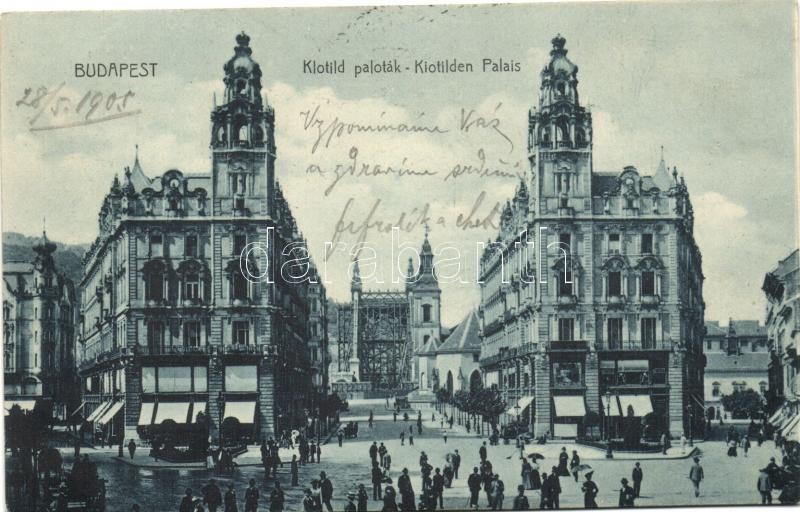 BUDAPEST
Klotild paloták - Klotilden Palais
28/5. 1905
Vzpomínáme Vás
a zdravíme srdečně
darabanth